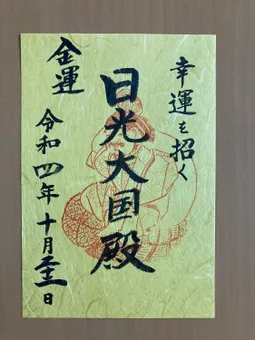 幸運を招く
日光大国殿
金運
令和四年十月二十三日